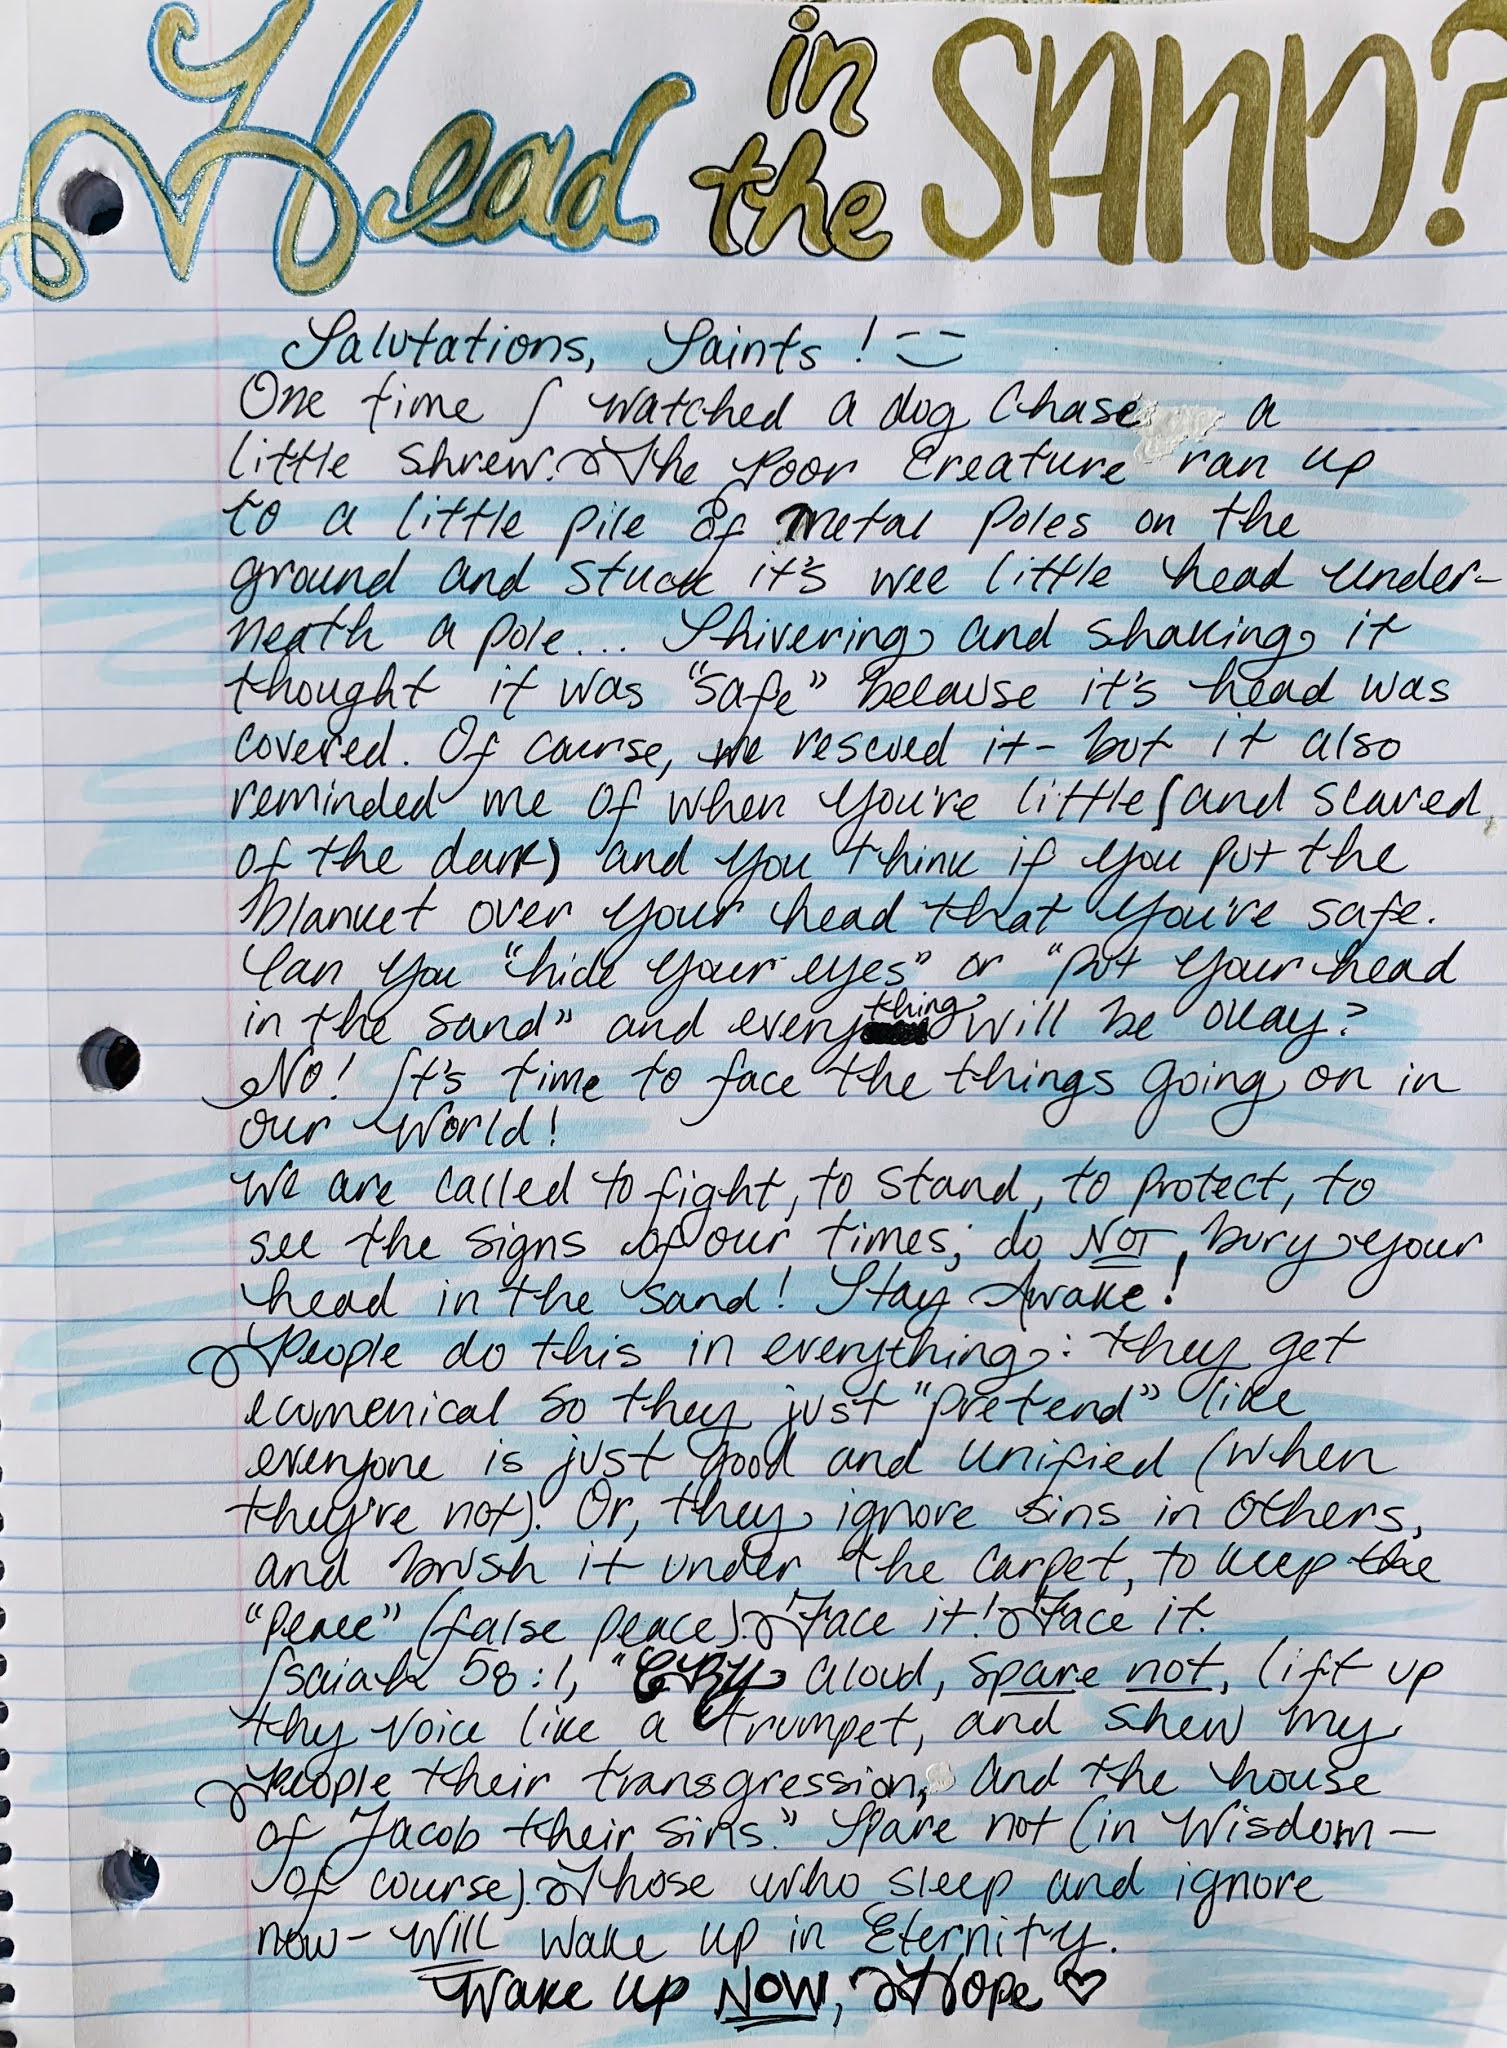 Head in the SAND?
Salutations, Saints! :)
One time I watched a dog chase a
little shrew. The poor creature ran up
to a little pile of metal poles on the
ground and stuck it's wee little head under-
neath a pole... Shivering and shaking, it
thought it was "safe" because it's head was
covered. Of course, we rescued it - but it also
reminded me of when you're little (and scared
of the dark) and you think if you put the
blanket over your head that you're safe.
Can you "hide your eyes" or "put your head
in the sand" and everything will be okay?
No! It's time to face the things going on in
our world!
We are called to fight, to stand, to protect, to
see the signs of our times; do NOT bury your
head in the sand! Stay Awake!
People do this in everything: they get
ecumenical so they just "pretend" like
everyone is just good and unified (when
they're not). Or, they ignore sins in others,
and brush it under the carpet, to keep the
"peace" (false peace). Face it! Face it.
Isaiah 58:1, "CRY aloud, spare not, lift up
thy voice like a trumpet, and shew my
people their transgression, and the house
of Jacob their sins." Spare not (in Wisdom —
of course). Those who sleep and ignore
now - Will wake up in Eternity.
Wake up NOW, Hope ♡